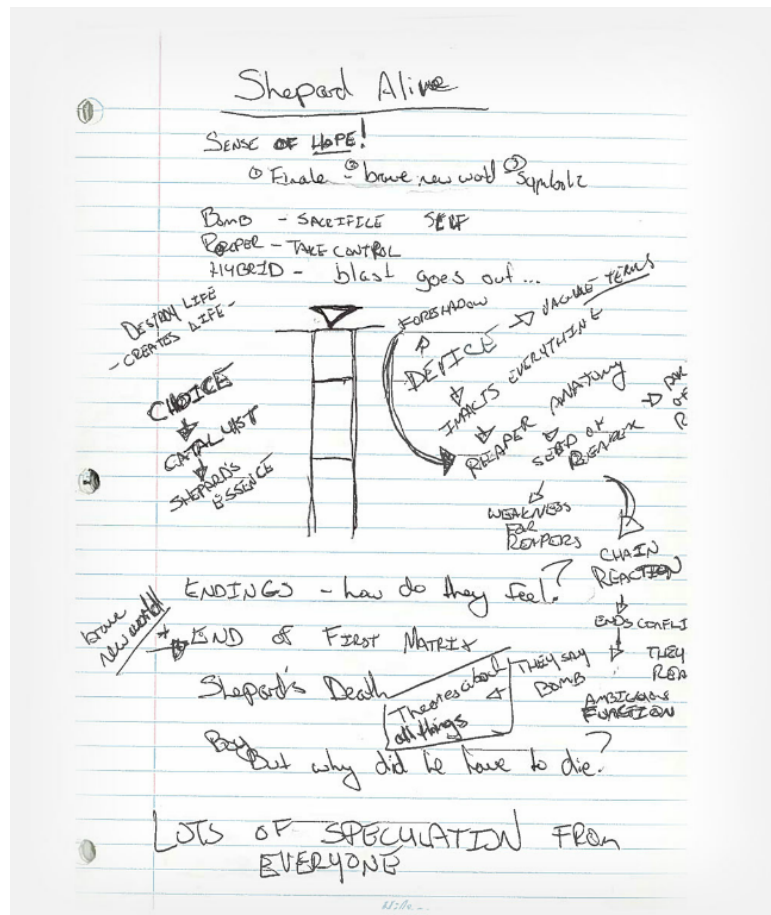 Shepard Alive
SENSE OF HOPE!
① Finale ② brave new world ③ Symbolz
BOMB - SACRIFICE SELF
REAPER - TAKE CONTROL
HYBRID - blast goes out...
DESTROY LIFE
- CREATES LIFE -
CHOICE
CATALYST
SHEPARD'S
ESSENCE
FORESHADOW
DEVICE → VAGUE TERMS
IMPACTS EVERYTHING
REAPER ANATOMY
SEED OF
WEAKNESS
FOR
REAPERS
CHAIN
REACTION
ENDS CONFLI
THEY
REA
AMBIGUOUS
FUNCTION
ENDINGS - how do they feel?
brave
new world!
END OF FIRST MATRIX
Shepard's Death
Theories about
all things
THEY SAY
BOMB
Boy
But why did he have to die?
LOTS OF SPECULATION FROM
EVERYONE